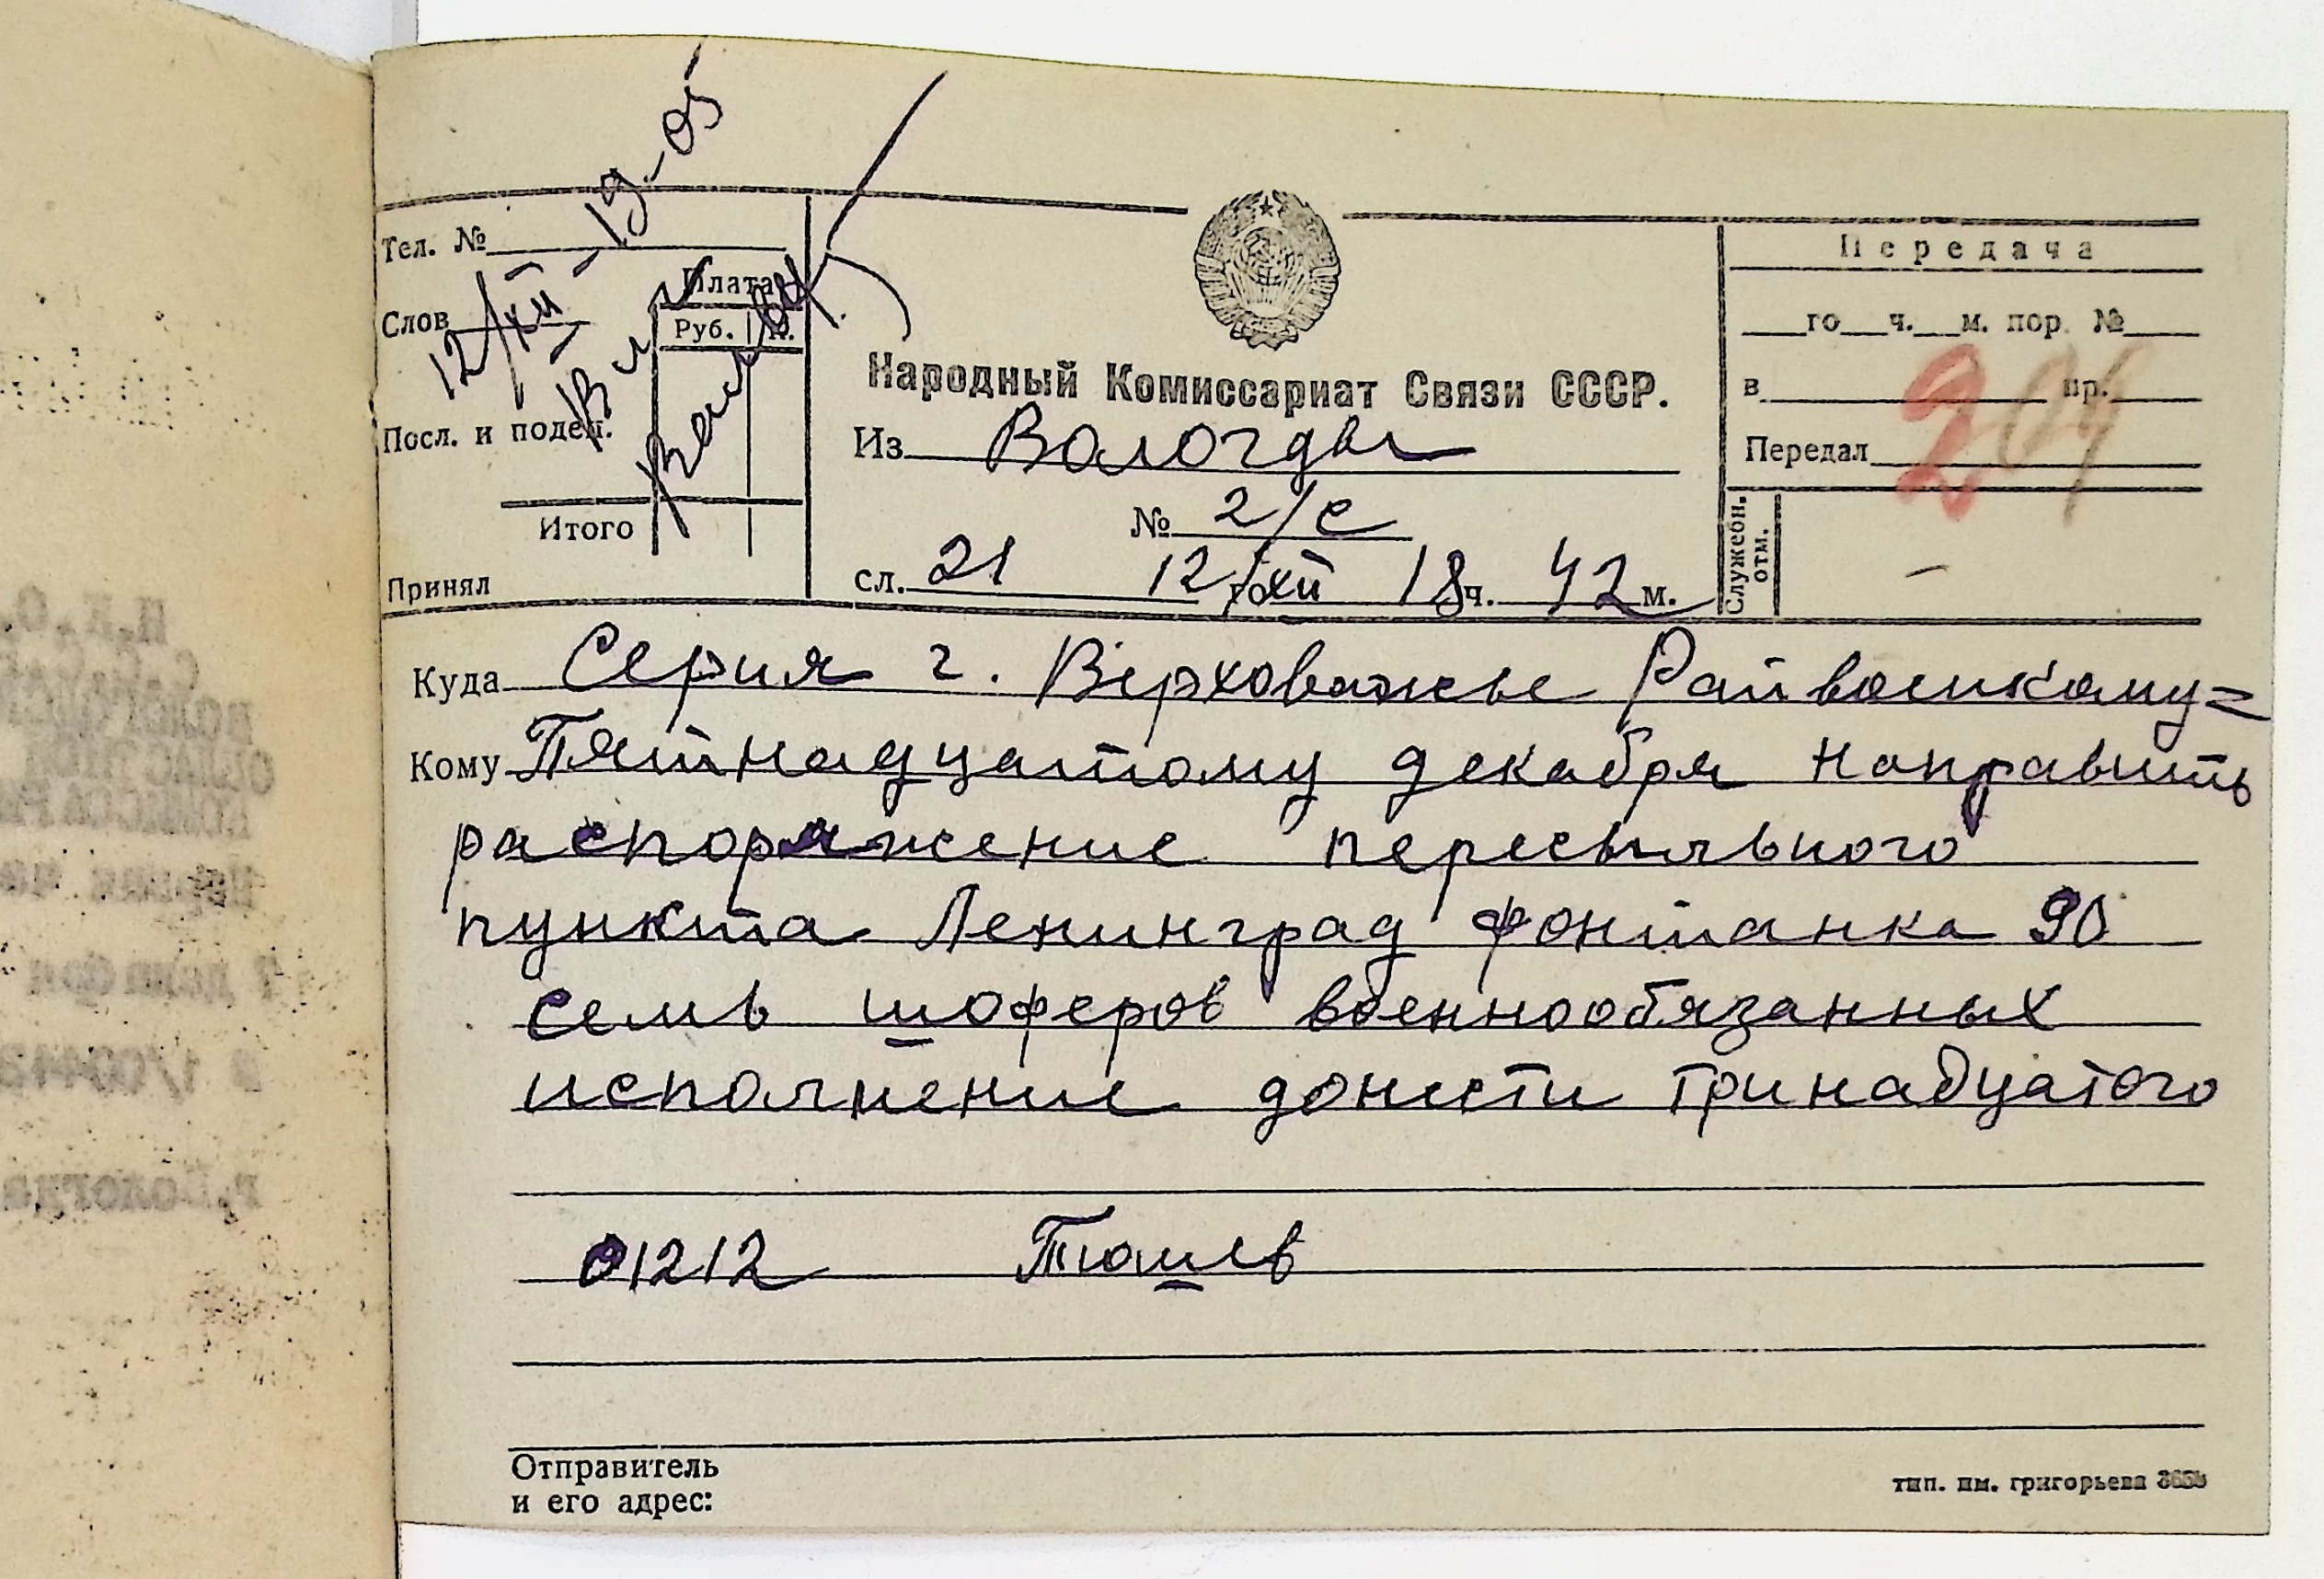 12/XII - 19-05
Тел. №
Плата
Слов
Руб. К.
Посл. и поден.
Итого
Принял
Народный Комиссариат Связи СССР.
Из Вологды
№ 2/с
сл. 21 12/го XII 18 ч. 42 м.
Передача
го ч. м. пор. №
в пр.
Передал
204
Служебн.
отм.
Куда Серия г. Верховажье Райвоенкому=
Кому Пятнадцатому декабря направить
распоряжение пересыльного
пункта Ленинград фонтанка 90
семь шоферов военнообязанных
исполнение донести тринадцатого
01212 Тюшев
Отправитель
и его адрес:
тип. им. григорьева